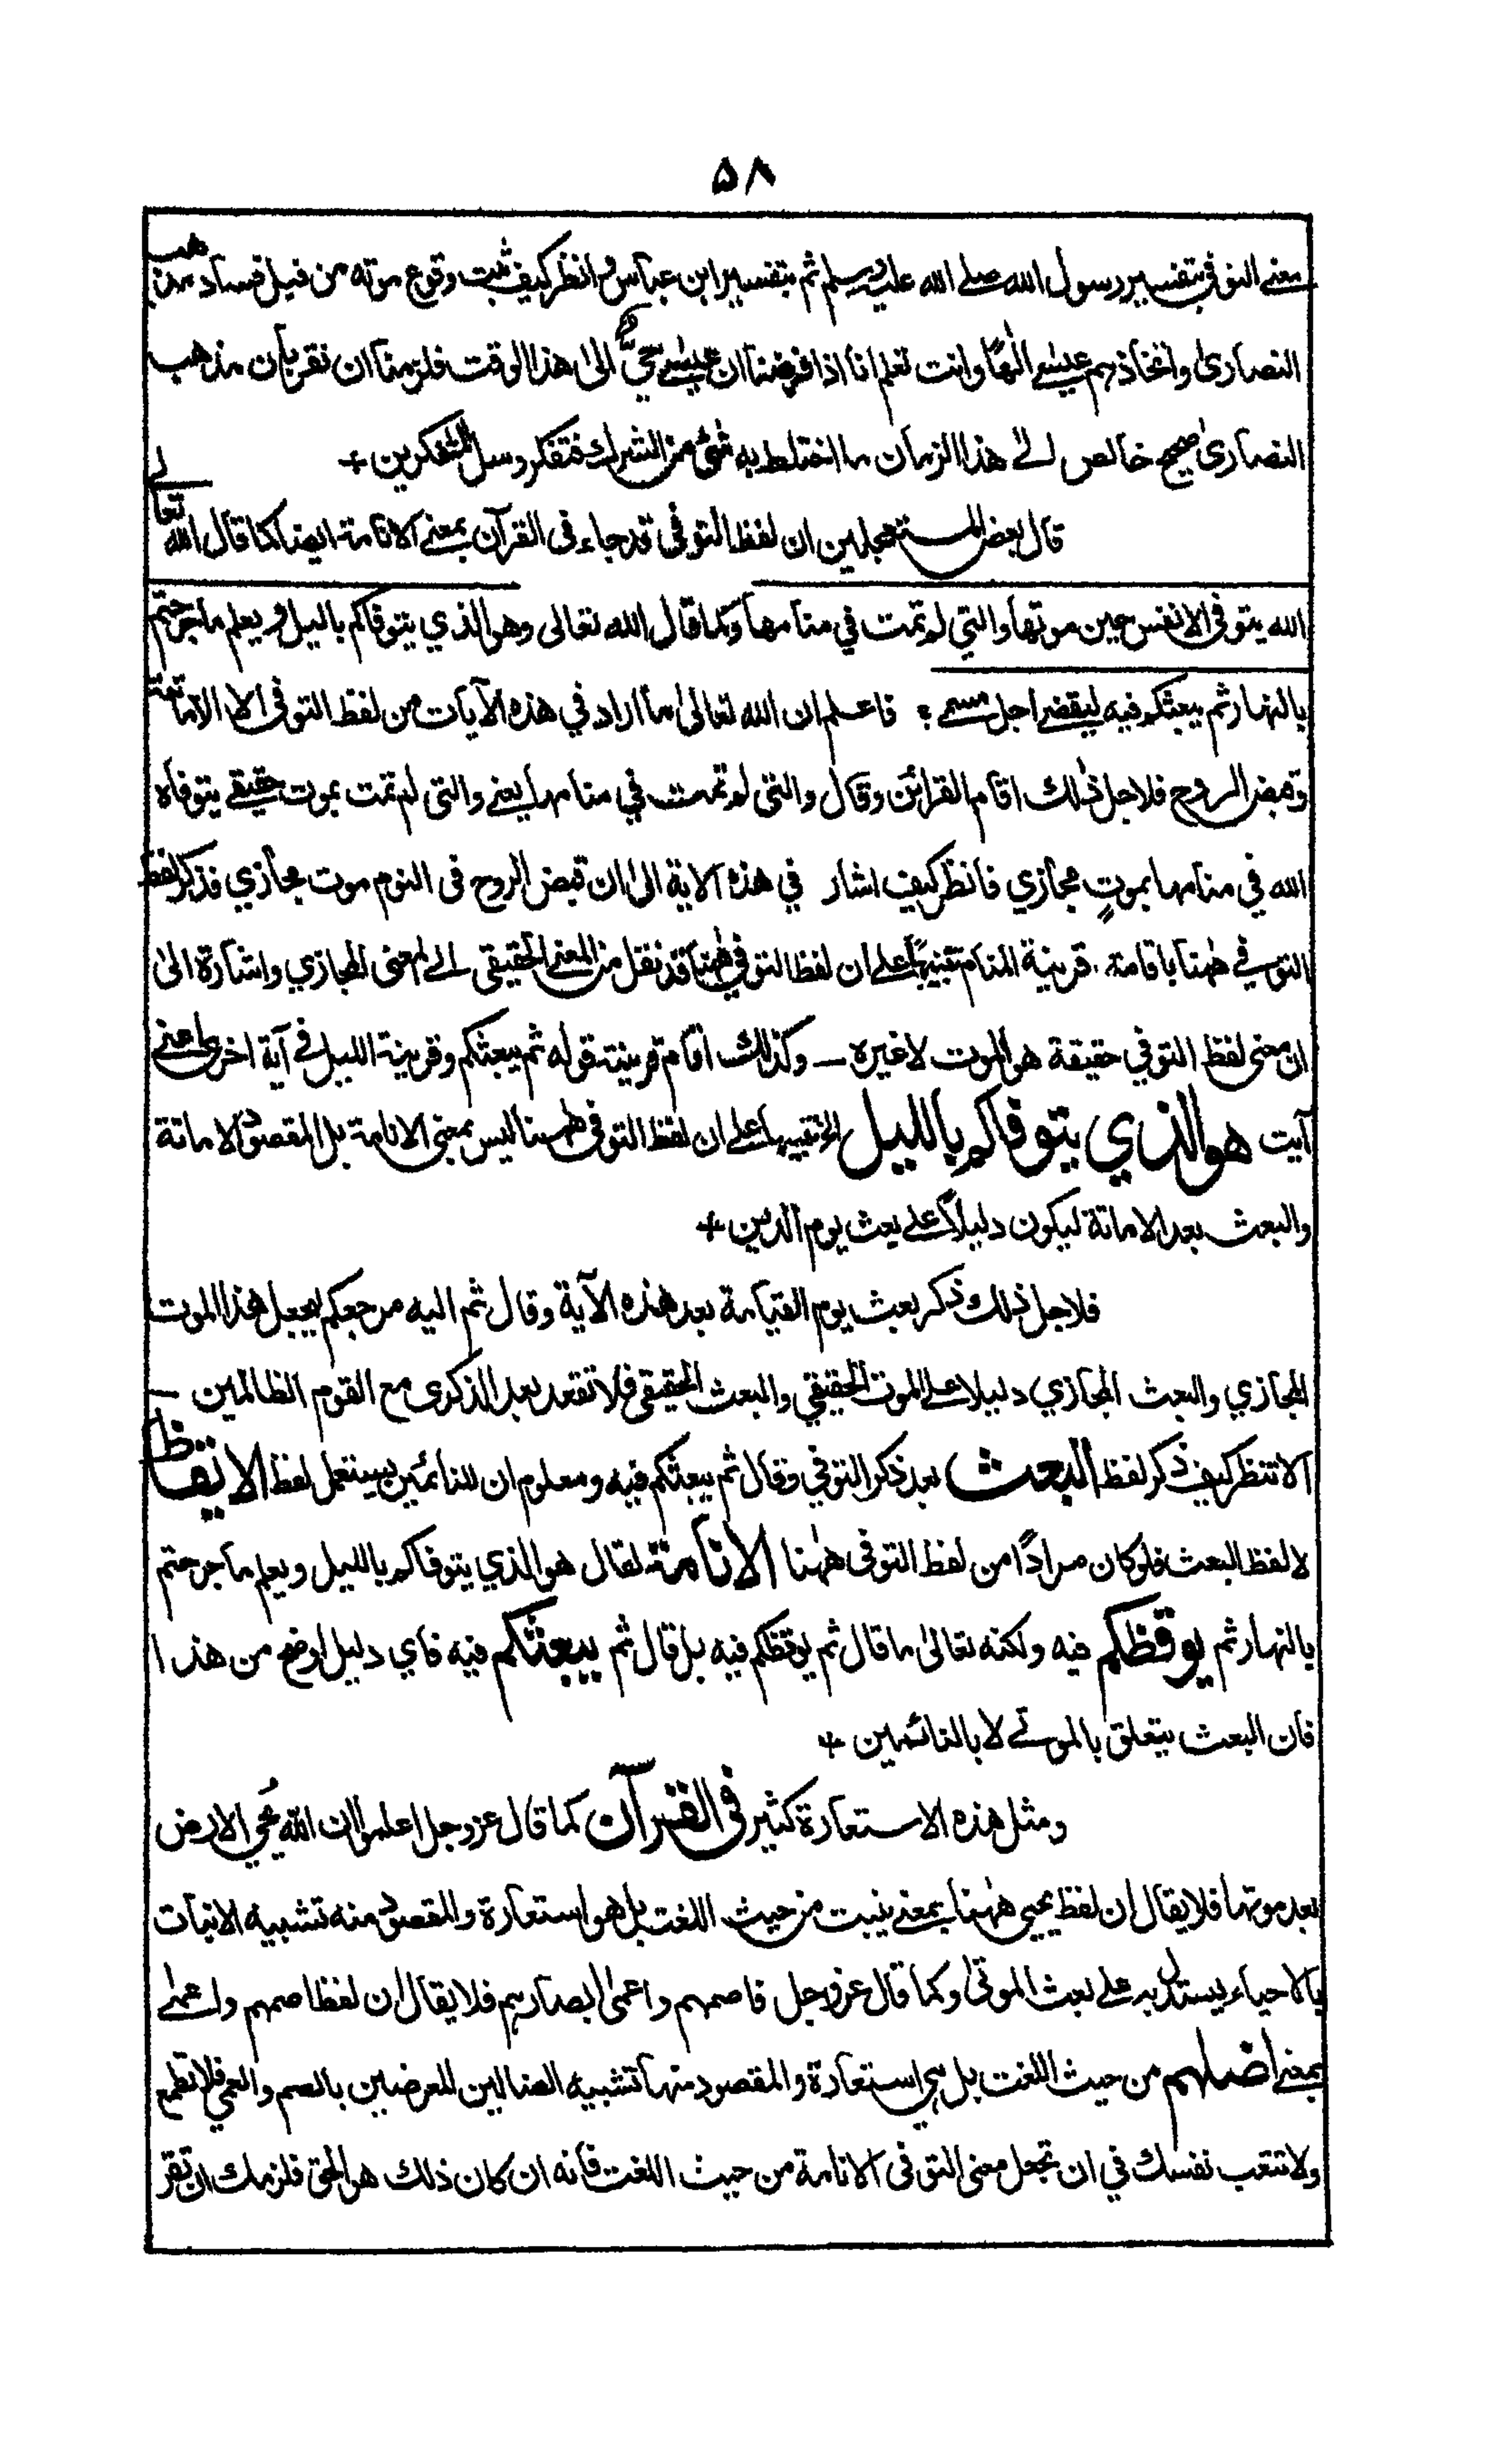 ۵۸
معنے التوفی بتفسیر رسول الله صلے الله علیہ وسلم ثم بتفسیر ابن عباس وانظر کیف ثبت وقوع موته من قبل فساد مذهب
النصاریٰ واتخاذهم عیسےٰ الٰهًا وانت تعلم انا اذا فرضنا ان عیسےٰ حیٌّ الیٰ هذا الوقت فلزمنا ان نقر بان مذهب
النصاریٰ صحیح خالص الے هذا الزمان ما اختلط به شئ من الشرك فتفکر وسل المتفکرین +
قال بعض المستعجلین ان لفظ التوفی قد جاء فی القرآن بمعنے الانامة ایضا کما قال الله تعالے
الله یتوفی الانفس حین موتها والتی لم تمت فی منامها وکما قال الله تعالی وهو الذی یتوفاکم باللیل ویعلم ما جرحتم
بالنهار ثم یبعثکم فیه لیقضے اجل مسمے؛ فاعلم ان الله تعالیٰ ما اراد فی هذه الآیات من لفظ التوفی الا الاماتة
وقبض الروح فلاجل ذٰلك اقام القرائن وقال والتی لم تمت فی منامها یعنے والتی لم تمت بموت حقیقے یتوفاه
الله فی منامها بموتٍ مجازی فانظر کیف اشار فی هذه الایة الیٰ ان قبض الروح فی النوم موت مجازی فذکر لفظ
التوفے هٰهنا باقامة قرینة المنام تنبیهًا علے ان لفظ التوفی هٰهنا قد نقل من المعنے الحقیقی الے المعنی المجازی واشارة الیٰ
ان معنی لفظ التوفی حقیقة هو الموت لا غیره — وکذٰلك اقام قرینة قوله ثم یبعثکم وقرینة اللیل فے آیة اخریٰ اعنے
آیت هو الذی یتوفاکم باللیل الخ تنبیها علے ان لفظ التوفی هٰهنا لیس بمعنی الانامة بل المقصود الاماتة
والبعث بعد الاماتة لیکون دلیلاً علے بعث یوم الدین +
فلاجل ذٰلك ذکر بعث یوم القیامة بعد هذه الآیة وقال ثم الیه مرجعکم لیجعل هذا الموت
المجازی والبعث المجازی دلیلا علے الموت الحقیقی والبعث الحقیقی فلا تقعد بعد الذکری مع القوم الظالمین —
الا تنظر کیف ذکر لفظ البعث بعد ذکر التوفی وقال ثم یبعثکم فیه ومعلوم ان للنائمین یستعمل لفظ الایقاظ
لا لفظ البعث فلو کان مرادًا من لفظ التوفی هٰهنا الانامة لقال هو الذی یتوفاکم باللیل ویعلم ما جرحتم
بالنهار ثم یوقظکم فیه ولکنه تعالیٰ ما قال ثم یوقظکم فیه بل قال ثم یبعثکم فیه فای دلیل اوضح من هذا
فان البعث یتعلق بالموتے لا بالنائمین +
ومثل هذه الاستعارة کثیر فی القرآن کما قال عز وجل اعلموا ان الله یُحی الارض
بعد موتها فلا یقال ان لفظ یحیی هٰهنا بمعنے ینبت من حیث اللغت بل هو استعارة والمقصود منه تشبیه الانبات
بالاحیاء لیستدل به علے بعث الموتیٰ وکما قال عز وجل فاصمهم واعمیٰ ابصارهم فلا یقال ان لفظ اصمهم واعمےٰ
بمعنے اضلهم من حیث اللغت بل هی استعارة والمقصود منها تشبیه الضالین المعرضین بالصم والعمی فلا تطمع
ولا تتعب نفسك فی ان تجعل معنی التوفی الانامة من حیث اللغت فانه ان کان ذلك هو الحق فلزمك ان تقر